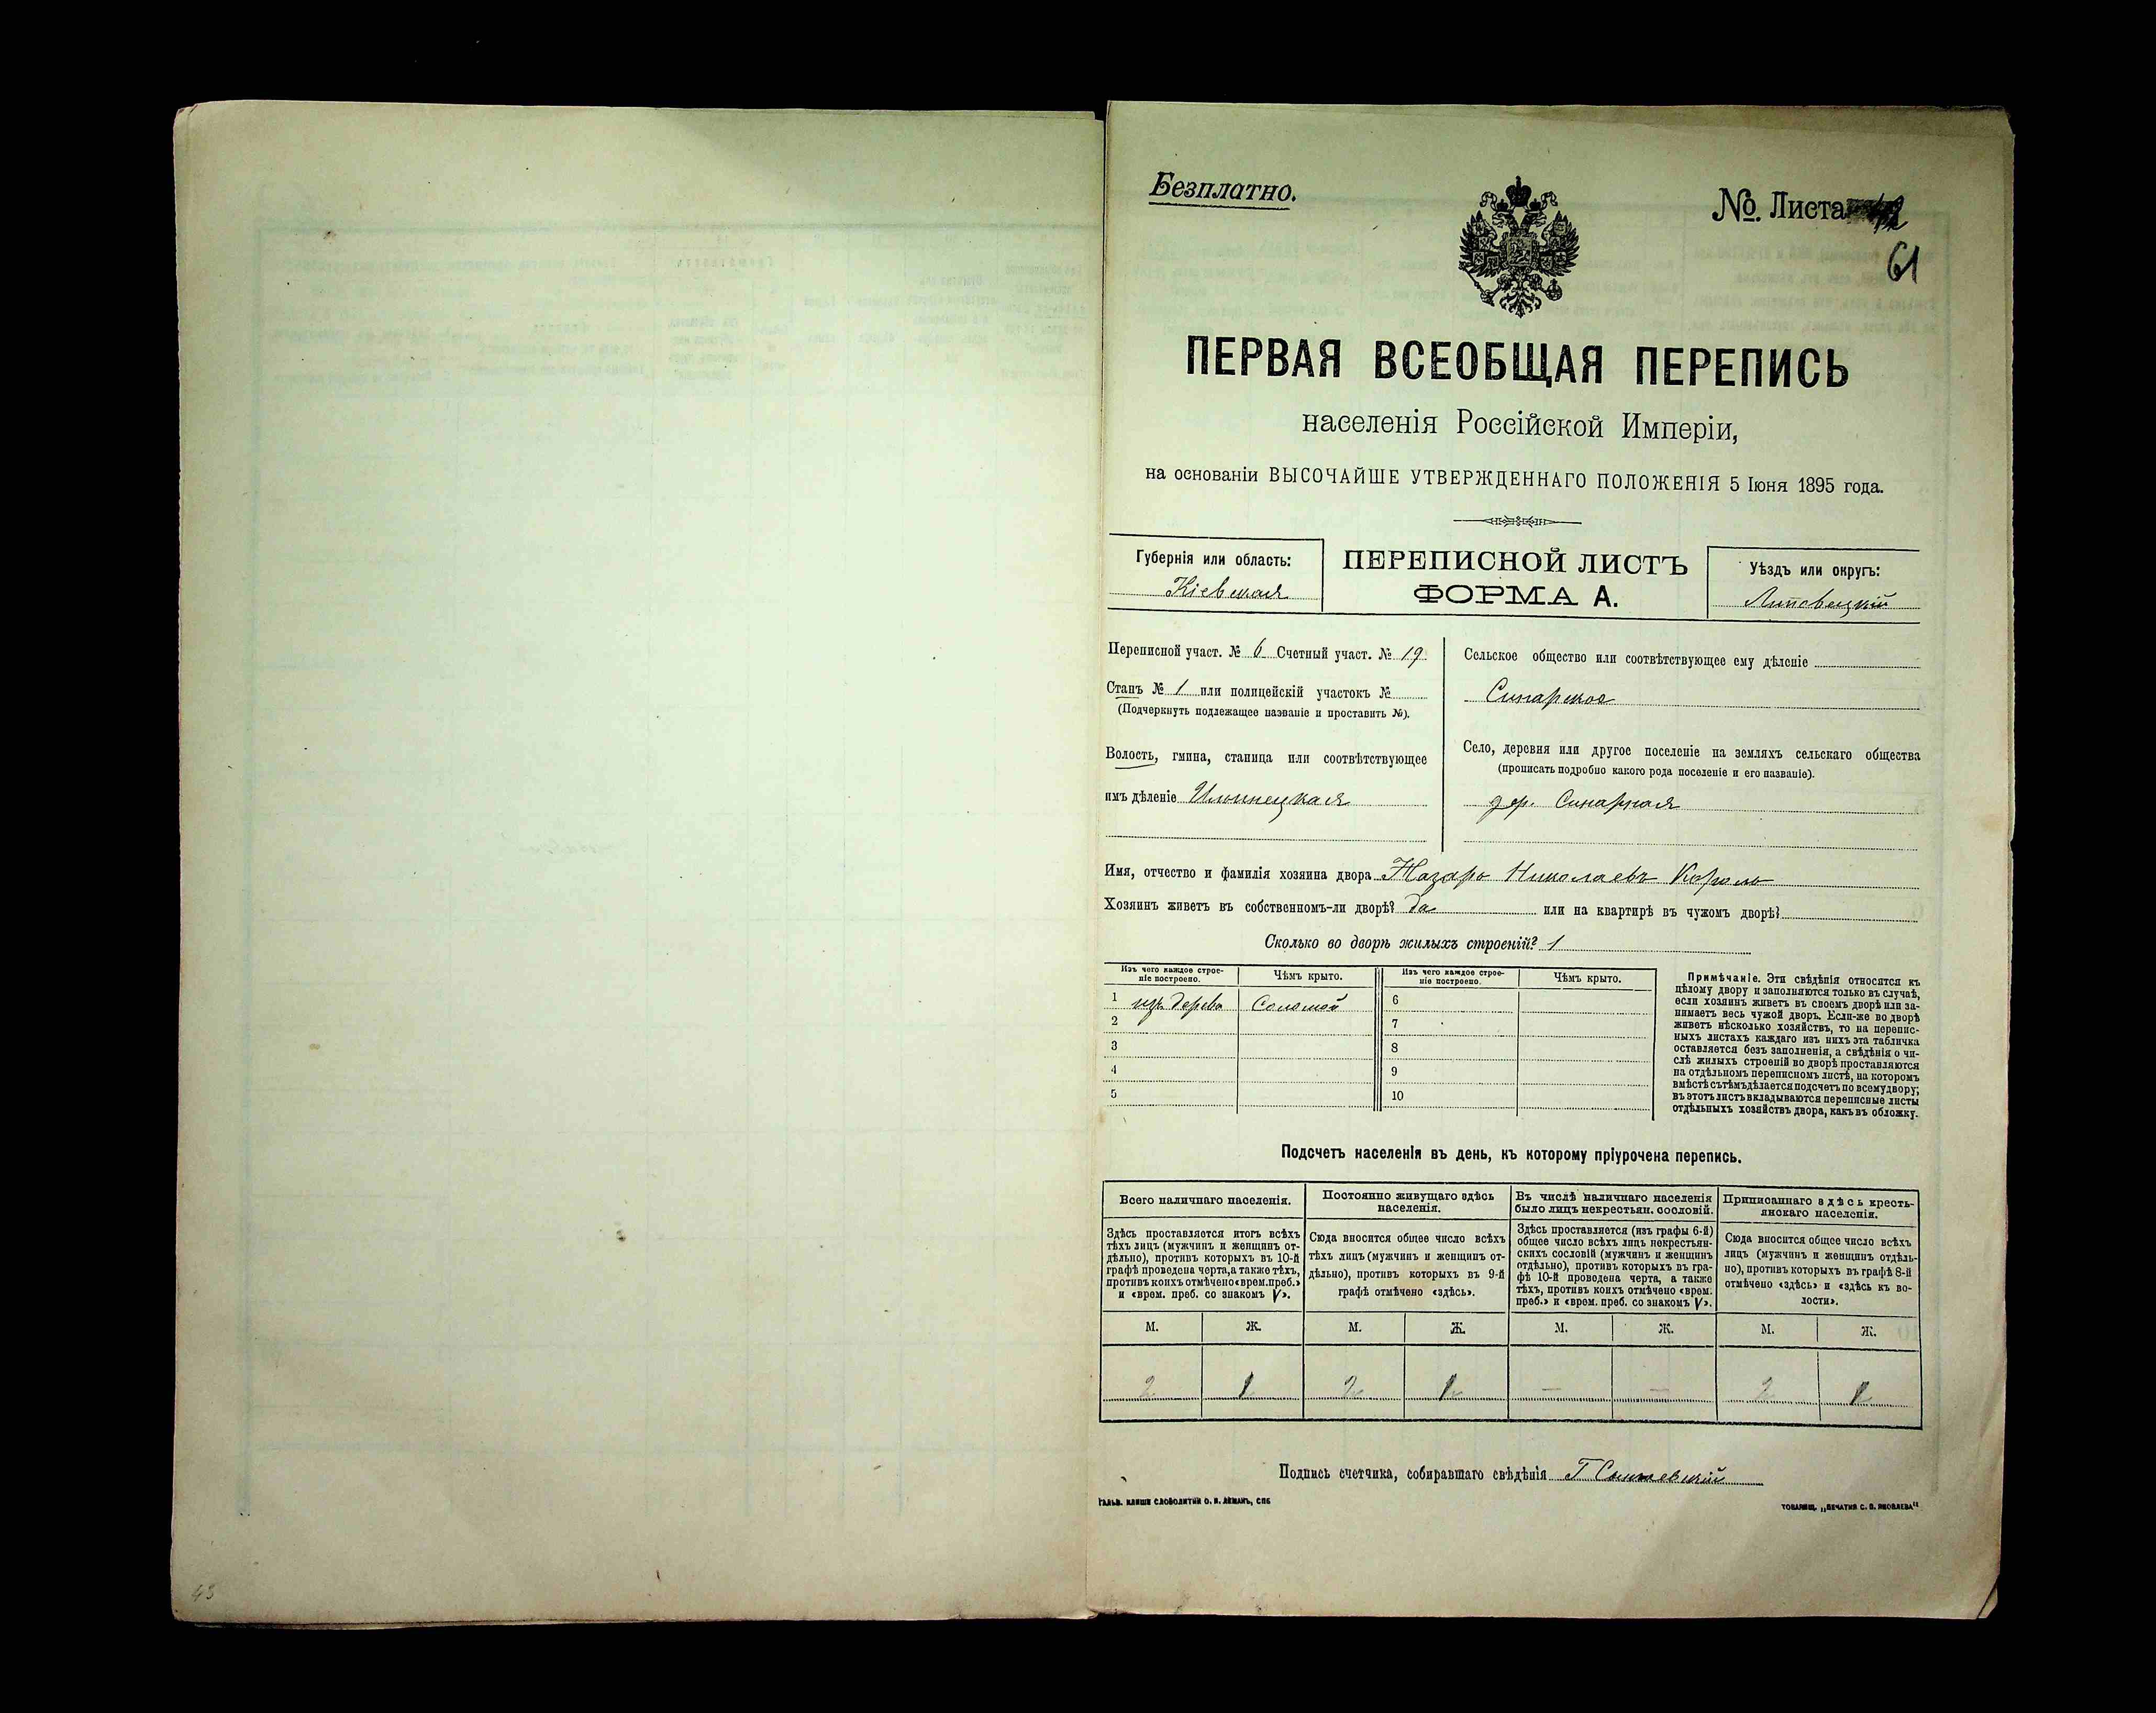 Безплатно.
№ Листа
61
ПЕРВАЯ ВСЕОБЩАЯ ПЕРЕПИСЬ
населенія Россійской Имперіи,
на основаніи ВЫСОЧАЙШЕ УТВЕРЖДЕННАГО ПОЛОЖЕНІЯ 5 Іюня 1895 года.
Губернія или область:
Кіевская
ПЕРЕПИСНОЙ ЛИСТЪ
ФОРМА А.
Уѣздъ или округъ:
Липовецкій
Переписной участ. № 6 Счетный участ. № 19
Станъ № 1 или полицейскій участокъ №
(Подчеркнуть подлежащее названіе и проставить №).
Волость, гмина, станица или соотвѣтствующее
имъ дѣленіе Ильинецкая
Сельское общество или соотвѣтствующее ему дѣленіе
Синарское
Село, деревня или другое поселеніе на земляхъ сельскаго общества
(прописать подробно какого рода поселеніе и его названіе).
дер. Синарная
Имя, отчество и фамилія хозяина двора Назаръ Николаевъ Король
Хозяинъ живетъ въ собственномъ-ли дворѣ? да или на квартирѣ въ чужомъ дворѣ?
Сколько во дворѣ жилыхъ строеній? 1
Изъ чего каждое строе-
ніе построено.
Чѣмъ крыто.
Изъ чего каждое строе-
ніе построено.
Чѣмъ крыто.
1 изъ дерева Соломой 6
2 7
3 8
4 9
5 10
Примѣчаніе. Эти свѣдѣнія относятся къ
цѣлому двору и заполняются только въ случаѣ,
если хозяинъ живетъ въ своемъ дворѣ или за-
нимаетъ весь чужой дворъ. Если-же во дворѣ
живетъ нѣсколько хозяйствъ, то на перепис-
ныхъ листахъ каждаго изъ нихъ эта табличка
оставляется безъ заполненія, а свѣдѣнія о чи-
слѣ жилыхъ строеній во дворѣ проставляются
на отдѣльномъ переписномъ листѣ, на которомъ
вмѣстѣ съ тѣмъ дѣлается подсчетъ по всему двору;
въ этотъ листъ вкладываются переписные листы
отдѣльныхъ хозяйствъ двора, какъ въ обложку.
Подсчетъ населенія въ день, къ которому пріурочена перепись.
Всего наличнаго населенія.
Здѣсь проставляется итогъ всѣхъ
тѣхъ лицъ (мужчинъ и женщинъ от-
дѣльно), противъ которыхъ въ 10-й
графѣ проведена черта, а также тѣхъ,
противъ коихъ отмѣчено «врем. преб.»
и «врем. преб. со знакомъ V».
Постоянно живущаго здѣсь
населенія.
Сюда вносится общее число всѣхъ
тѣхъ лицъ (мужчинъ и женщинъ от-
дѣльно), противъ которыхъ въ 9-й
графѣ отмѣчено «здѣсь».
Въ числѣ наличнаго населенія
было лицъ некрестьян. сословій.
Здѣсь проставляется (изъ графы 6-й)
общее число всѣхъ лицъ некрестьян-
скихъ сословій (мужчинъ и женщинъ
отдѣльно), противъ которыхъ въ гра-
фѣ 10-й проведена черта, а также
тѣхъ, противъ коихъ отмѣчено «врем.
преб.» и «врем. преб. со знакомъ V».
Приписаннаго здѣсь кресть-
янскаго населенія.
Сюда вносится общее число всѣхъ
лицъ (мужчинъ и женщинъ отдѣль-
но), противъ которыхъ въ графѣ 8-й
отмѣчено «здѣсь» и «здѣсь къ во-
лости».
М. Ж. М. Ж. М. Ж. М. Ж.
2 1 2 1 — — 2 1
Подпись счетчика, собиравшаго свѣдѣнія Г
Гальв. клише словолитни О. И. Леманъ, СПБ
Товарищ. „Печатня С. П. Яковлева“
43